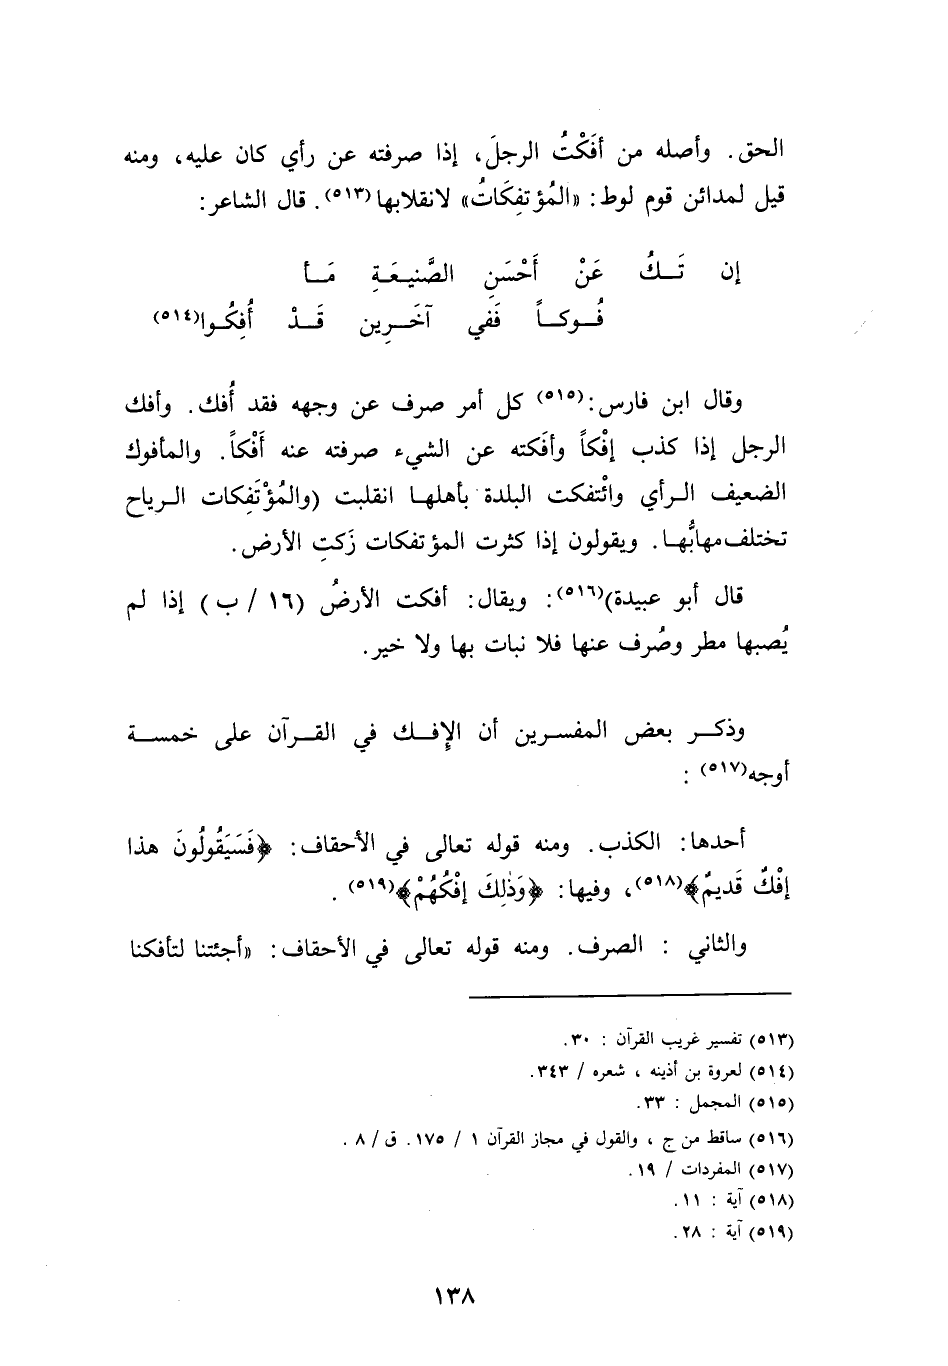 الحق. وأصله من أَفَكْتُ الرجلَ، إذا صرفته عن رأي كان عليه، ومنه
قيل لمدائن قوم لوط: «المُؤتفِكَاتُ» لانقلابها(٥١٣). قال الشاعر:
إن تَــكُ عَنْ أَحْسَنِ الصَّنيعَةِ مَــأ
فُــوكــاً فَفي آخَــرِين قَــدْ أُفِكُــوا(٥١٤)
وقال ابن فارس:(٥١٥) كل أمر صرف عن وجهه فقد أُفك. وأفك
الرجل إذا كذب إفْكاً وأفَكته عن الشيء صرفته عنه أَفْكاً. والمأفوك
الضعيف الرأي وائْتفكت البلدة بأهلها انقلبت (والمُؤْتَفِكات الرياح
تختلف مهابُّها. ويقولون إذا كثرت المؤتفكات زَكتِ الأرض.
قال أبو عبيدة)(٥١٦): ويقال: أفكت الأرضُ (١٦ / ب) إذا لم
يُصبها مطر وصُرف عنها فلا نبات بها ولا خير.
وذكــر بعض المفسرين أن الإفــك في القــرآن على خمســة
أوجه(٥١٧) :
أحدها: الكذب. ومنه قوله تعالى في الأحقاف: ﴿فَسَيَقُولُونَ هذا
إفْكٌ قَديمٌ﴾(٥١٨)، وفيها: ﴿وَذٰلِكَ إفْكُهُمْ﴾(٥١٩).
والثاني : الصرف. ومنه قوله تعالى في الأحقاف: «أجئتنا لتأفكنا
(٥١٣) تفسير غريب القرآن : ٣٠.
(٥١٤) لعروة بن أذينه ، شعره / ٣٤٣.
(٥١٥) المجمل : ٣٣.
(٥١٦) ساقط من ج ، والقول في مجاز القرآن ١ / ١٧٥. ق / ٨ .
(٥١٧) المفردات / ١٩.
(٥١٨) آية : ١١.
(٥١٩) آية : ٢٨.
١٣٨